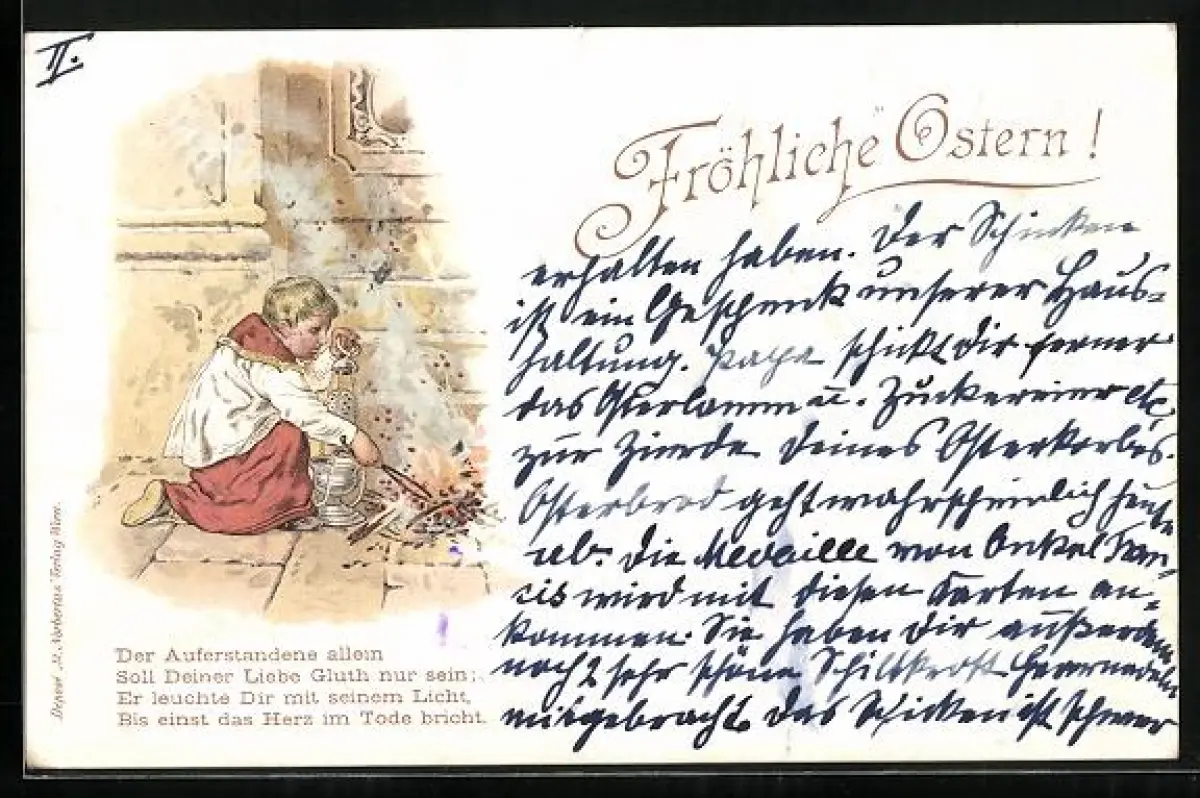 II.
Fröhliche Ostern!
erhalten haben. Der Schinken
ist ein Geschenk unserer Haus=
haltung. Papa schickt Dir ferner
das Osterlamm u. Zuckereier etc
zur Zierde Deines Osterkorbes.
Osterbrod geht wahrscheinlich heute
ab. Die Medaille von Onkel Fran-
cis wird mit diesen Karten an-
kommen. Sie haben Dir außerdem
noch 2 sehr schöne Schildkrott Haarnadeln
mitgebracht. Das Schicken ist schwer
Der Auferstandene allein
Soll Deiner Liebe Gluth nur sein;
Er leuchte Dir mit seinem Licht,
Bis einst das Herz im Tode bricht.
Depost „St. Norbertus“ Verlag Wien.